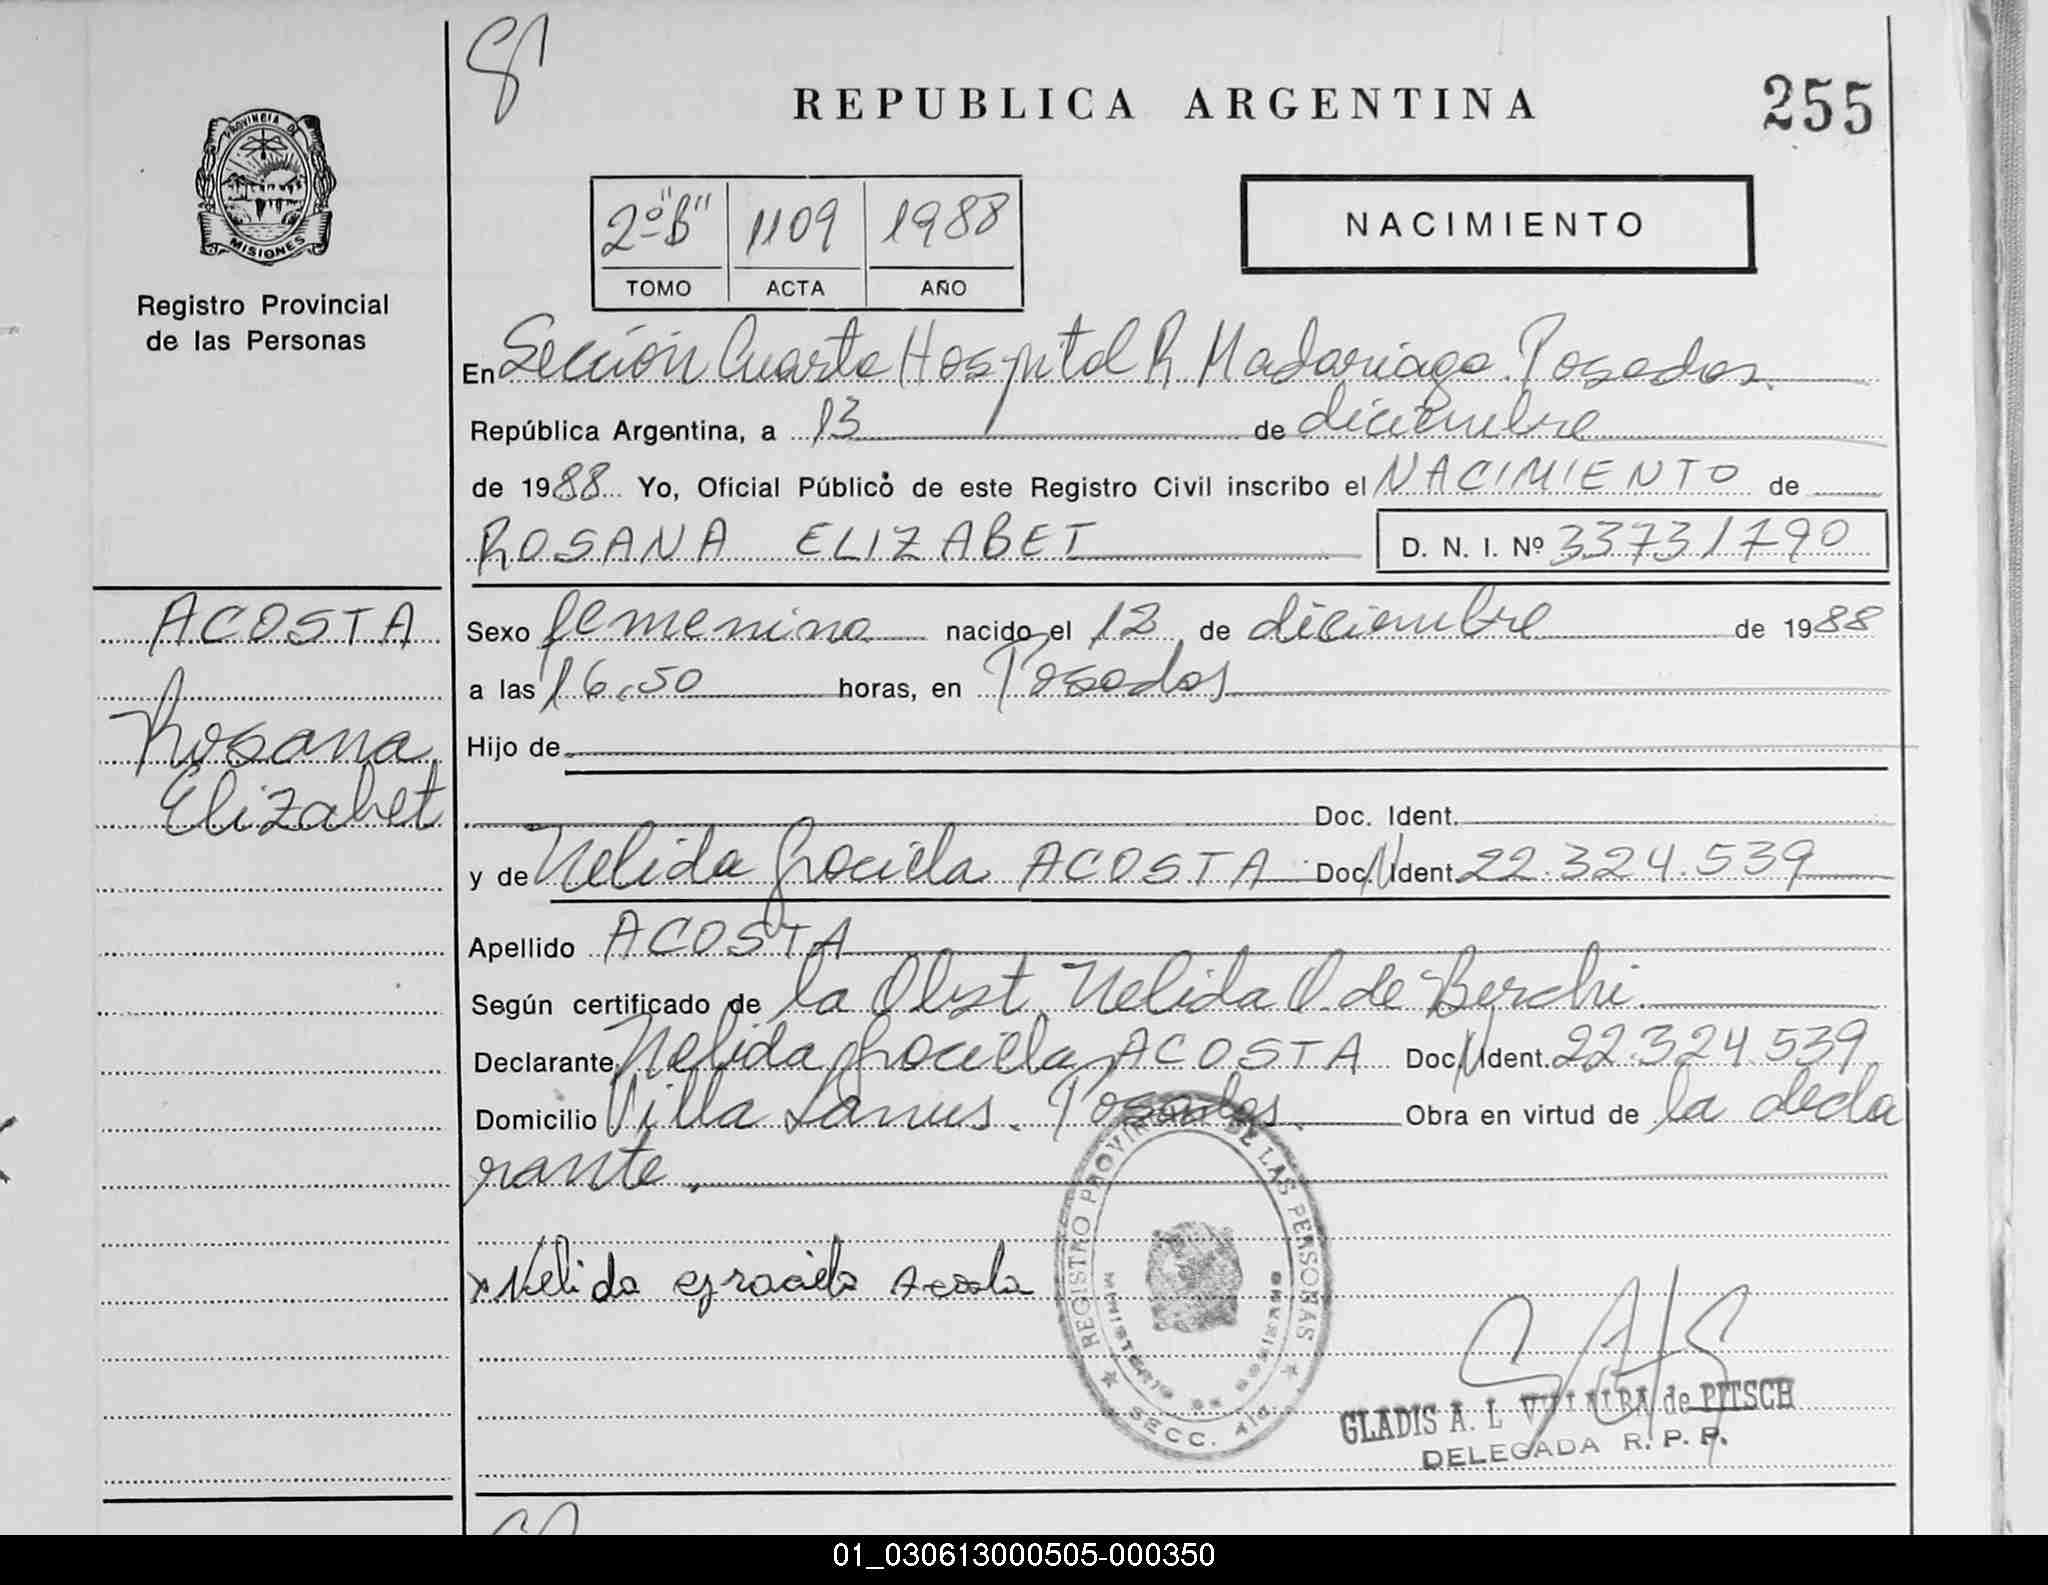 REPUBLICA ARGENTINA
255
PROVINCIA DE
MISIONES
Registro Provincial
de las Personas
2º "B" 1109 1988
TOMO ACTA AÑO
NACIMIENTO
En Sección Cuarta Hospital R. Madariaga. Posadas.
República Argentina, a 13 de diciembre
de 1988 Yo, Oficial Público de este Registro Civil inscribo el NACIMIENTO de
ROSANA ELIZABET D. N. I. Nº 33731790
ACOSTA
Rosana
Elizabet
Sexo femenino nacido el 12 de diciembre de 1988
a las 16,50 horas, en Posadas
Hijo de
Doc. Ident.
y de Nelida Graciela ACOSTA Doc. N Ident. 22.324.539
Apellido ACOSTA
Según certificado de la Obst. Nelida O. de Berchi.
Declarante Nelida Graciela ACOSTA Doc. N Ident. 22.324 539
Domicilio Villa Lanus. Posadas. Obra en virtud de la decla
rante.
x Nelida Graciela Acosta
REGISTRO PROVINCIAL DE LAS PERSONAS
MINISTERIO DE GOBIERNO
SECC. 4ta.
GLADIS A. L. VILLALBA de PITSCH
DELEGADA R. P. P.
01_030613000505-000350